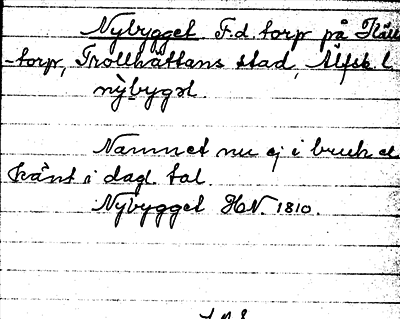 Nybygget. F.d. torp på Käll
-torp, Trollhättans stad, Älfsb. l.
nỳbygət.
Namnet nu ej i bruk el
känt i dagl. tal.
Nybygget HN. 1810.